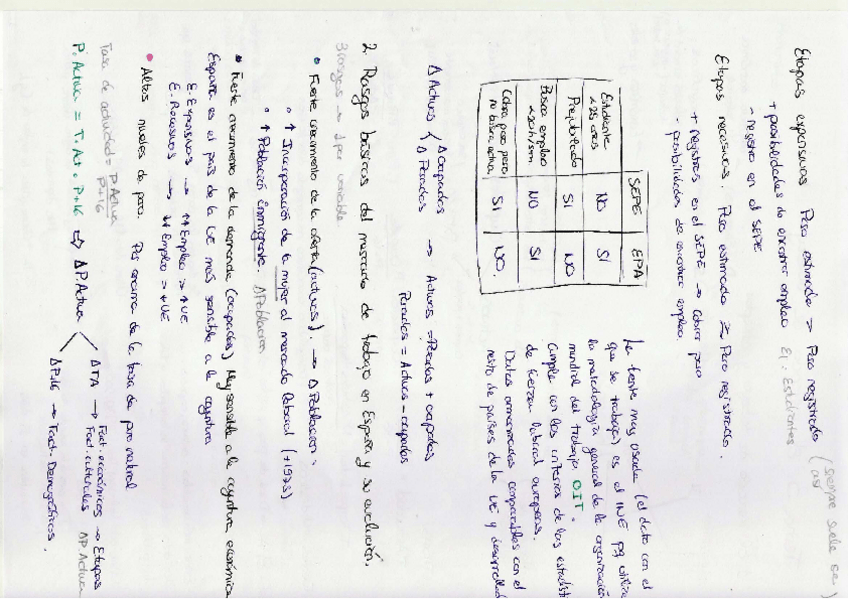 Etapas expansivas Paro estimado > Paro registrado (siempre suele ser así)
+ posibilidades de encontrar empleo Ej. Estudiantes
- registro en el SEPE
Etapas recesivas. Paro estimado ≥ Paro registrado.
+ registros en el SEPE → cobrar paro
- posibilidades de encontrar empleo
SEPE EPA
Estudiante <25 años NO SI
Prejubilado SI NO
Busca empleo NO SI
Cobra paro pero no busca activa SI NO.
La fuente más usada (el dato con el
que se trabaja) es el INE pq utiliza
la metodología general de la organización
mundial del trabajo OIT.
Cumple con los criterios de las
de fuerza laboral europeas.
Datos armonizados comparables con el
resto de países de la UE y
Δ Activos Δ Ocupados → Activos = Parados + ocupados
Δ Parados
Parados = Activos - ocupados
2. Rasgos básicos del mercado de trabajo en España y su evolución.
3 rasgos → 1 por variable
• Fuerte crecimiento de la oferta (activos). → Δ Población.
• ↑ Incorporación de la mujer al mercado laboral
• ↑ Población inmigrante. Δ Población
• Fuerte crecimiento de la demanda (ocupados) Muy sensible a la coyuntura económica
España es el país de la UE más sensible a la coyuntura
E. Expansivas → ↑↑ Empleo > ↑ UE
E. Recesivas → ↓↓ Empleo > ↓ UE
• Altos niveles de paro. Por encima de la tasa de paro natural
Tasa de actividad = P. Activa / P+16
P. Activa = T. Act · P+16 ⇒ Δ P. Activa
Δ TA → Fact. económicos → Etapas Δ P. Activa
Fact. culturales
Δ P+16 → Fact. Demográficos.